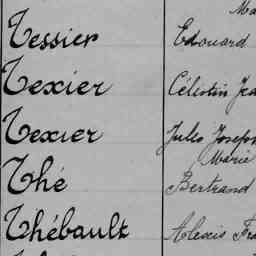 Tessier Edouard
Texier Célestin
Texier Jules Joseph
Marie
Thé Bertrand
Thébault Alexis